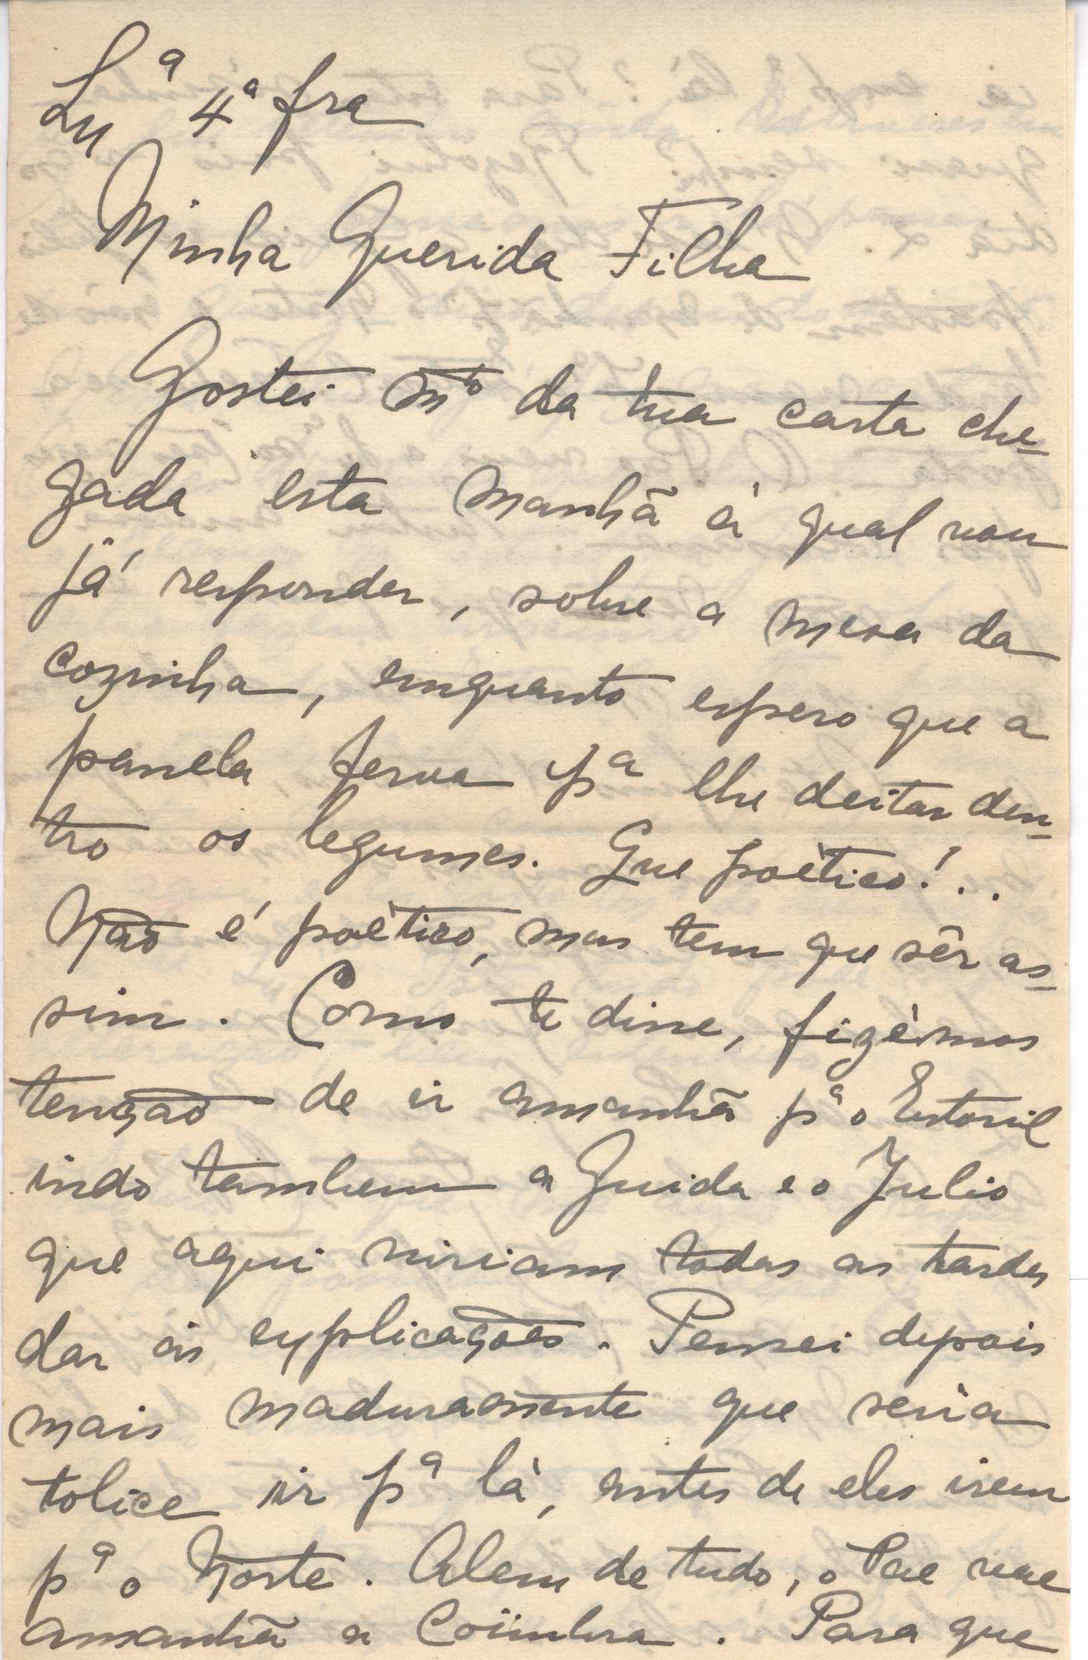 Lxª 4ª fra
Minha Querida Filha
Gostei mto da tua carta che-
gada esta manhã à qual vou
já responder, sobre a mesa da
cozinha, emquanto espero que a
panela ferva pª lhe deitar den-
tro os legumes. Que poètico!..
Não é poètico, mas tem que sêr as-
sim. Como te disse, fizémos
tenção de ir amanhã pª o Estoril
indo tambem a Guida e o Julio
que aqui viriam todas as tardes
dar as explicações. Pensei depois
mais maduramente que seria
tolice ir pª là, antes de eles irem
pª o Norte. Alem de tudo, o Pae vae
amanhã a Coïmbra. Para que